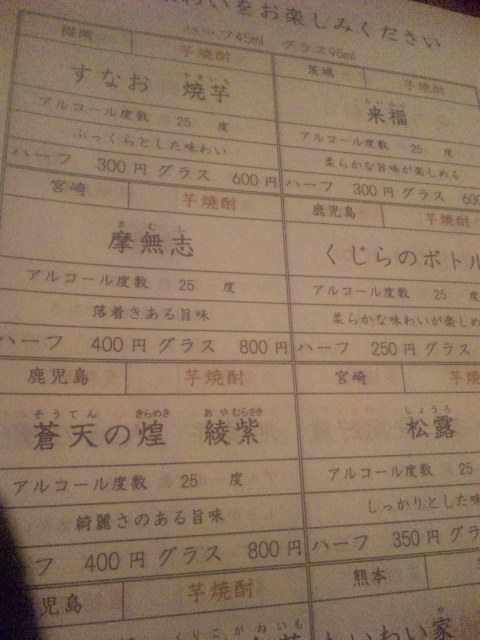 わいをお楽しみください
ハーフ45ml グラス95ml
福岡 芋焼酎
すなお 焼芋
やきいも
アルコール度数 25 度
ふっくらとした味わい
ハーフ 300円 グラス 600円
茨城 芋焼酎
らいふく
来福
アルコール度数 25 度
柔らかな旨味が楽しめる
ハーフ 300円 グラス 600
宮崎 芋焼酎
まむし
摩無志
アルコール度数 25 度
落着きある旨味
ハーフ 400円 グラス 800円
鹿児島 芋焼酎
くじらのボトル
アルコール度数 25 度
柔らかな味わいが楽しめ
ハーフ 250円 グラス
鹿児島 芋焼酎
そうてん きらめき あやむらさき
蒼天の煌 綾紫
アルコール度数 25 度
綺麗さのある旨味
フ 400円 グラス 800円
宮崎 芋焼
しょうろ
松露
アルコール度数 25
しっかりとした味
ハーフ 350円 グラス
児島 芋焼酎
くりこがねいも
熊本
家